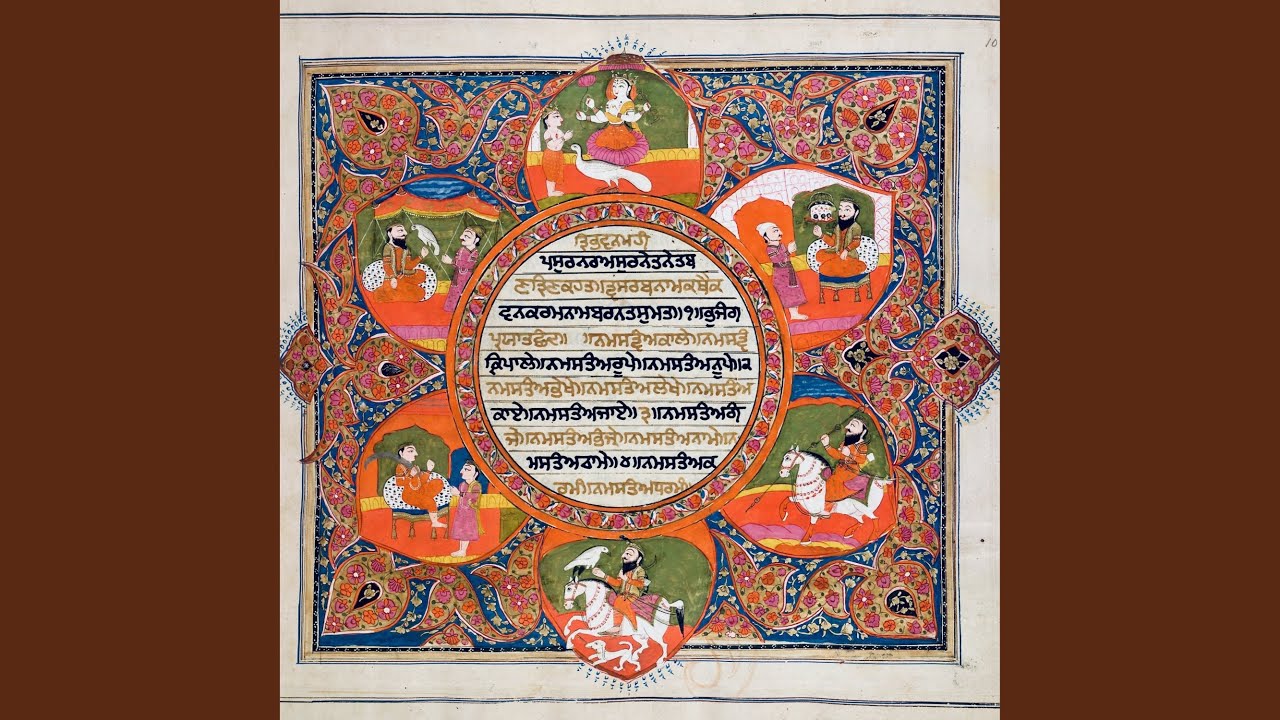 10
ਤ੍ਰਿਭਵਨਮਹੀ
ਪਸੁਰਨਰਅਸੁਰਨੇਤਨੇਤਬ
ਣਤ੍ਰਿਣਕਹਤ॥ਤ੍ਵਸਰਬਨਾਮਕਥੈਕ
ਵਨਕਰਮਨਾਮਬਰਨਤਸੁਮਤ॥੧॥ਭੁਜੰਗ
ਪ੍ਰਯਾਤਛੰਦ॥ ॥ਨਮਸਤ੍ਵੰਅਕਾਲੇ॥ਨਮਸਤ੍ਵੰ
ਕ੍ਰਿਪਾਲੇ॥ਨਮਸਤੰਅਰੂਪੇ॥ਨਮਸਤੰਅਨੂਪੇ॥੨
ਨਮਸਤੰਅਭੇਖੇ॥ਨਮਸਤੰਅਲੇਖੇ॥ਨਮਸਤੰਅ
ਕਾਏ॥ਨਮਸਤੰਅਜਾਏ॥੩॥ਨਮਸਤੰਅਗੰ
ਜੇ॥ਨਮਸਤੰਅਭੰਜੇ॥ਨਮਸਤੰਅਨਾਮੇ॥ਨ
ਮਸਤੰਅਠਾਮੇ॥੪॥ਨਮਸਤੰਅਕ
ਰਮੰ॥ਨਮਸਤੰਅਧਰਮੰ